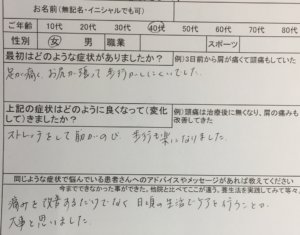 お名前（無記名・イニシャルでも可）
ご年齢 10代 20代 30代 40代 50代 60代 70代 80代
性別 女 男 職業 スポーツ
最初はどのような症状がありましたか？ 例)3日前から肩が痛くて頭痛もしていた
足が痛く、お尻が張って歩行がしにくいでした。
上記の症状はどのように良くなって(変化して)きましたか？ 例)頭痛は治療後に無くなり、肩の痛みも改善してきた
ストレッチをして筋がのび、歩行も楽になりました。
同じような症状で悩んでいる患者さんへのアドバイスやメッセージがあれば教えてください
今までできなかった事ができた。他院と比べてここが違う、養生法を実践してみて等々。
痛みを改善するだけでなく日頃の生活でケアを行うことが
大事と思いました。